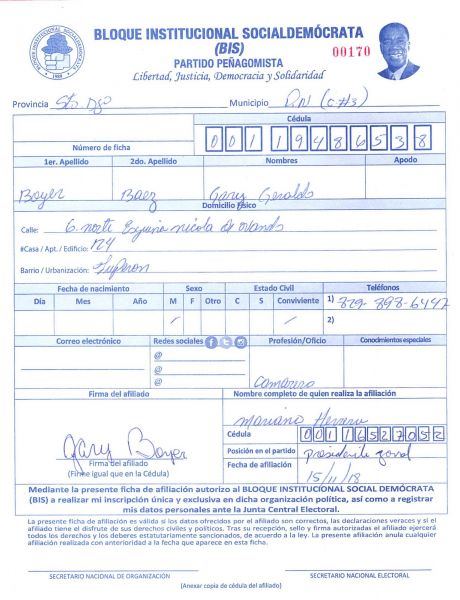 BLOQUE INSTITUCIONAL SOCIALDEMÓCRATA
(BIS)
00170
PARTIDO PEÑAGOMISTA
Libertad, Justicia, Democracia y Solidaridad
BLOQUE INSTITUCIONAL SOCIALDEMÓCRATA
Provincia Sto Dgo Municipio D.N (C#3)
Número de ficha
Cédula
001 1948653 8
1er. Apellido 2do. Apellido Nombres Apodo
Boyer Baez Gary Geraldo
Domicilio Físico
Calle: 6. norte Esquina nicola de ovando
#Casa / Apt. / Edificio: 124
Barrio / Urbanización: Luperon
Fecha de nacimiento Sexo Estado Civil Teléfonos
Día Mes Año M F Otro C S Conviviente 1) 829-898-6447
/ / 2)
Correo electrónico Redes sociales Profesión/Oficio Conocimientos especiales
@
@
@ Camarero
Firma del afiliado Nombre completo de quien realiza la afiliación
Mariano Herrera
Gary Boyer
Cédula 001 1652705 2
Posición en el partido presidente zonal
Firma del afiliado
(Firme igual que en la Cédula)
Fecha de afiliación 15/11/18
Mediante la presente ficha de afiliación autorizo al BLOQUE INSTITUCIONAL SOCIAL DEMÓCRATA
(BIS) a realizar mi inscripción única y exclusiva en dicha organización política, así como a registrar
mis datos personales ante la Junta Central Electoral.
La presente ficha de afiliación es válida si los datos ofrecidos por el afiliado son correctos, las declaraciones veraces y si el
afiliado tiene el disfrute de sus derechos civiles y políticos. Tras su recepción, sello y firma autorizadas el afiliado ejercerá
todos los derechos y los deberes estatutariamente sancionados, de acuerdo a la ley. La presente afiliación anula cualquier
afiliación realizada con anterioridad a la fecha que aparece en esta ficha.
SECRETARIO NACIONAL DE ORGANIZACIÓN SECRETARIO NACIONAL ELECTORAL
(Anexar copia de cédula del afiliado)